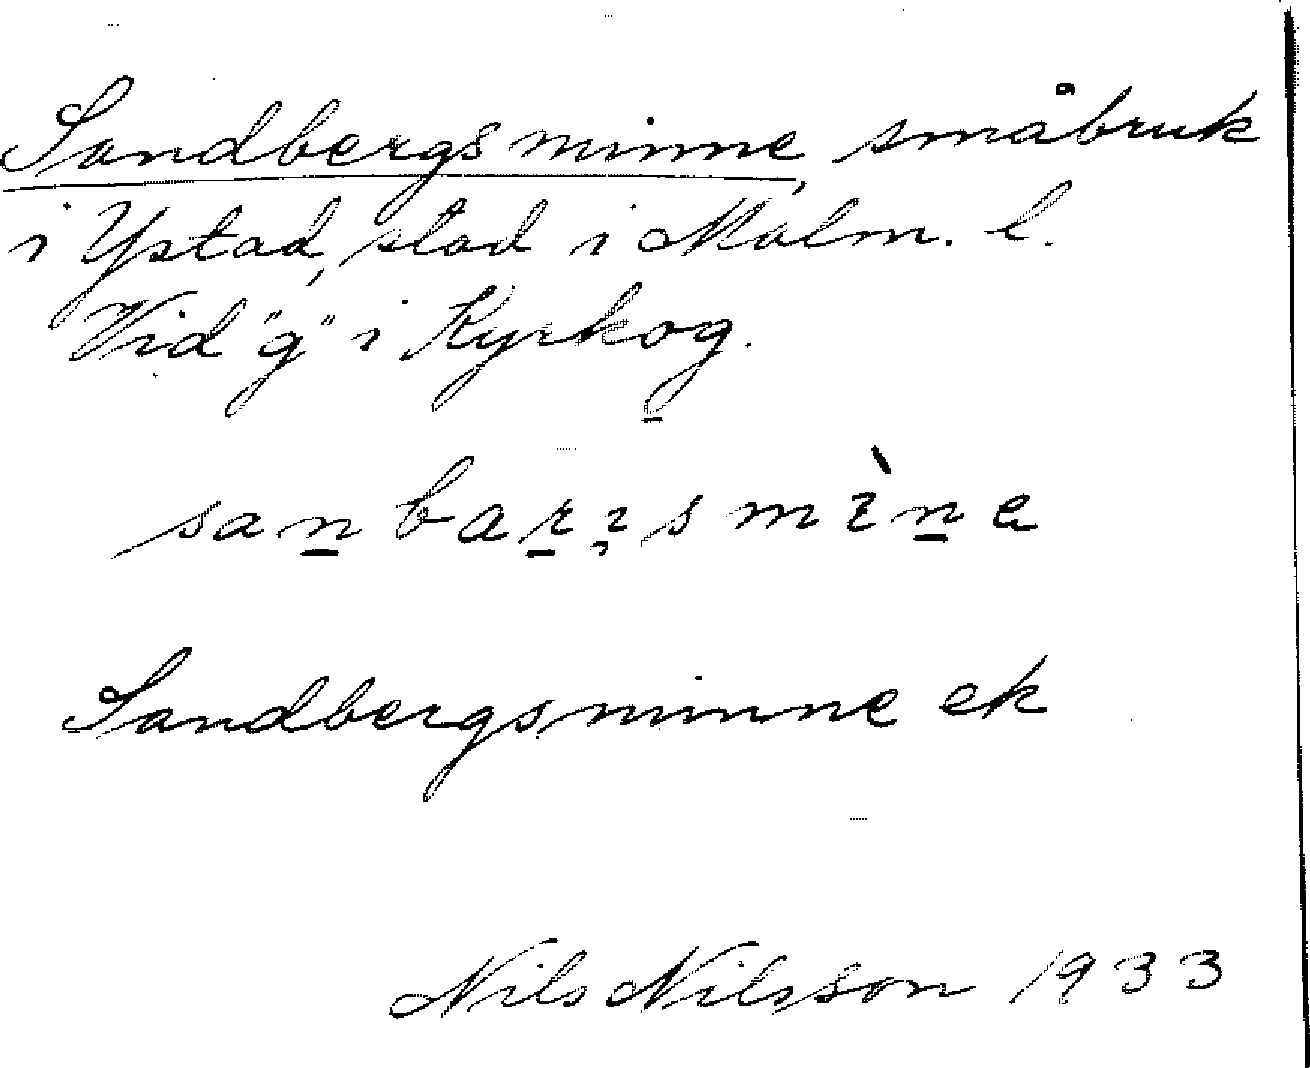 Sandbergsminne, småbruk
i Ystad, stad i Malm. l.
Vid "g" i Kyrkog.
Sandbergsminne ek
Nils Nilsson 1933